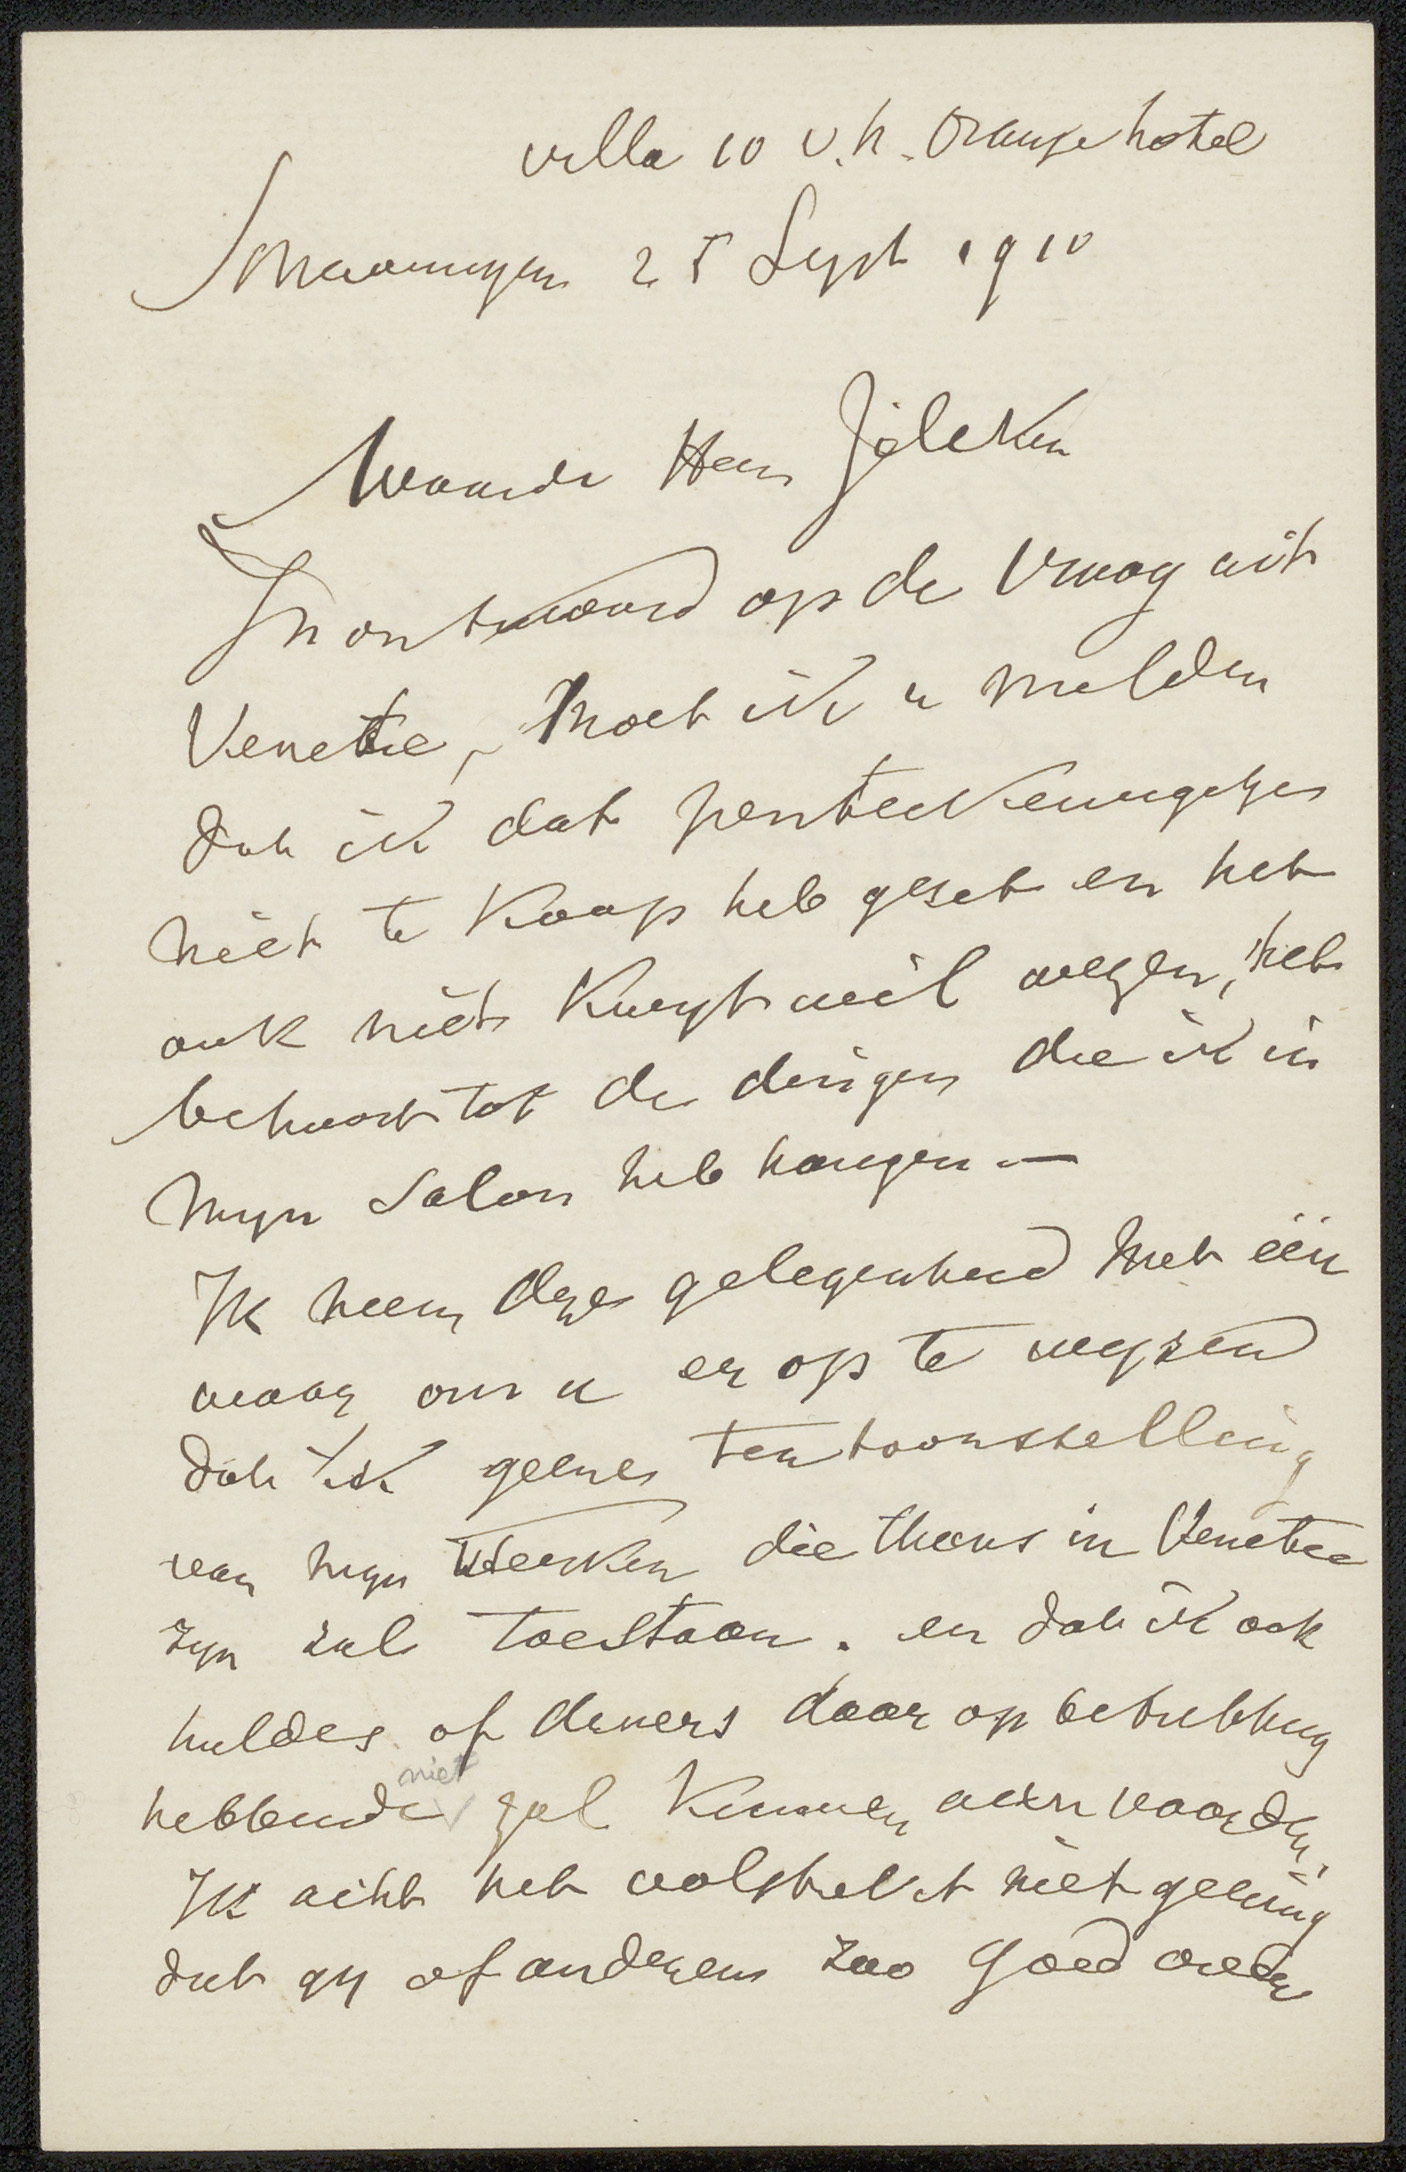 villa 10 v.h. Oranje hotel
Scheveningen 25 Sept 1910
Waarde Heer Zilcken
In antwoord op de vraag uit
Venetie, moet ik u melden
dat ik dat penteekeningetje
niet te koop heb gezet en het
ook niet kwyt wil wezen, het
behoort tot de dingen die ik in
myn salon heb hangen —
Ik neem deze gelegenheid met één
waar om u er op te wyzen
dat ik geene tentoonstelling
van myn werken die thans in Venetie
zyn zal toestaan. en dat ik ook
huldes of diners daar op betrekking
hebbende niet zal kunnen aanvaarden.
Ik acht het volstrekt niet gering
dat gy of anderen zoo goed